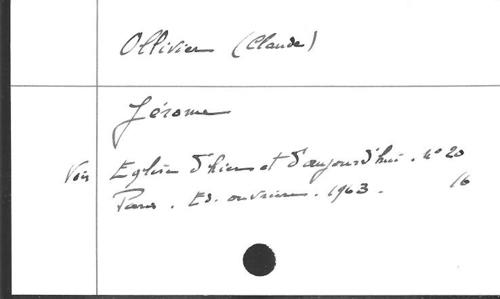 Ollivier (Claude)
Jérome
Voir Eglise d'hier et d'aujourd'hui. n° 20
Paris. Ed. ouvrières. 1963. 16